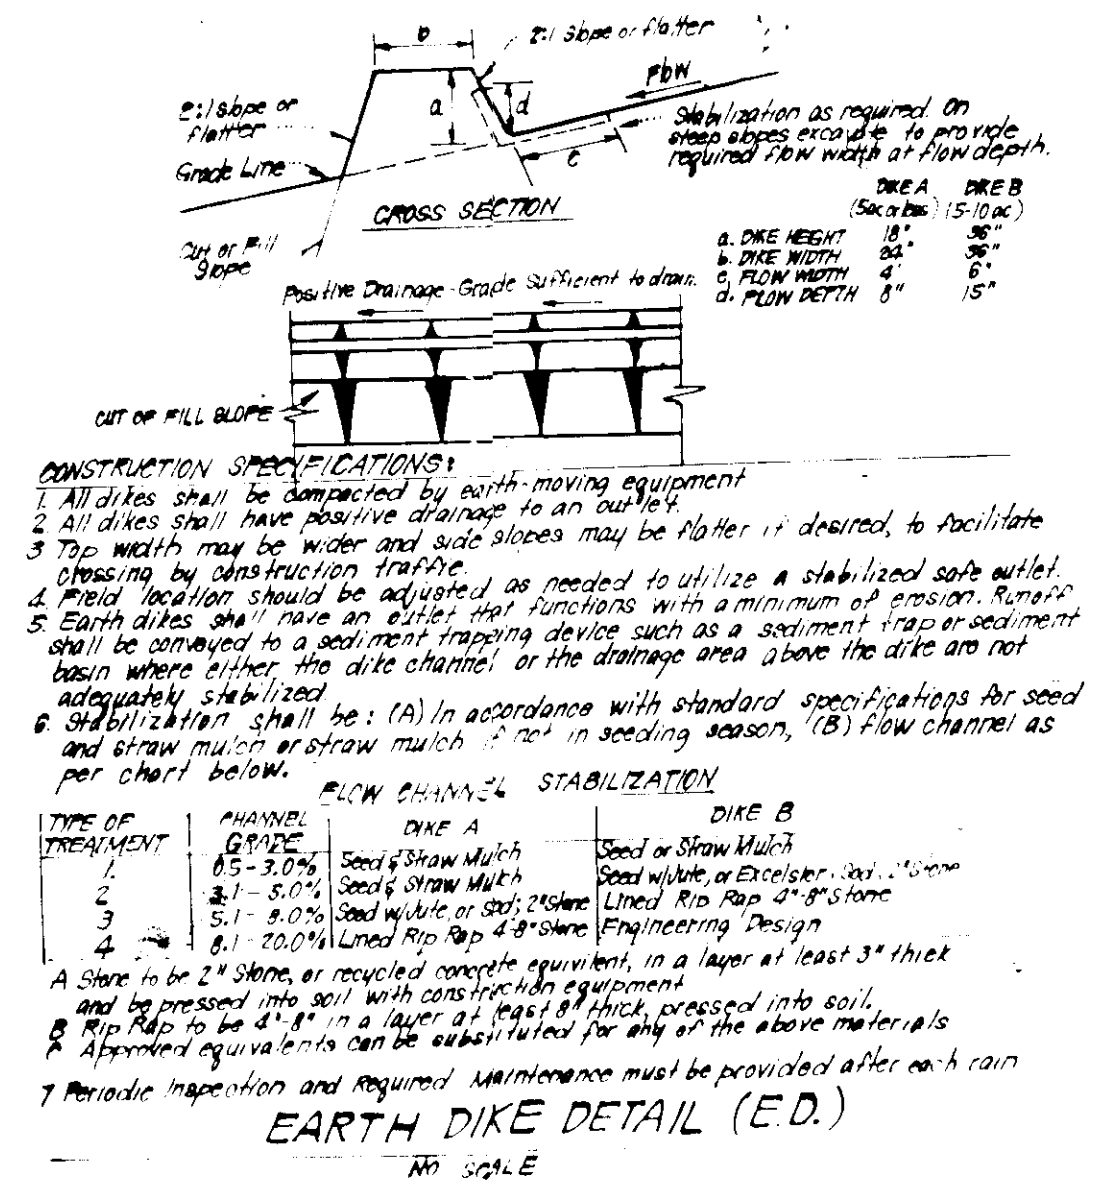 b
2:1 slope or flatter
Flow
a
d
2:1 slope or
flatter
Grade Line
c
Stabilization as required. On
steep slopes excavate to provide
required flow width at flow depth.
CROSS SECTION
Cut or Fill
Slope
DIKE A DIKE B
(5ac or less) (5-10 ac)
a. DIKE HEIGHT 18" 36"
b. DIKE WIDTH 24" 36"
c. FLOW WIDTH 4' 6'
d. FLOW DEPTH 8" 15"
Positive Drainage-Grade Sufficient to drain.
CUT OR FILL SLOPE
CONSTRUCTION SPECIFICATIONS:
1. All dikes shall be compacted by earth-moving equipment
2. All dikes shall have positive drainage to an outlet.
3 Top width may be wider and side slopes may be flatter if desired, to facilitate
crossing by construction traffic.
4. Field location should be adjusted as needed to utilize a stabilized safe outlet.
5. Earth dikes shall have an outlet that functions with a minimum of erosion. Runoff
shall be conveyed to a sediment trapping device such as a sediment trap or sediment
basin where either the dike channel or the drainage area above the dike are not
adequately stabilized.
6. Stabilization shall be: (A) In accordance with standard specifications for seed
and straw mulch or straw mulch if not in seeding season, (B) flow channel as
per chart below.
FLOW CHANNEL STABILIZATION
TYPE OF TREATMENT CHANNEL GRADE DIKE A DIKE B
1. 0.5-3.0% Seed & Straw Mulch Seed or Straw Mulch
2 3.1-5.0% Seed & Straw Mulch Seed w/Jute, or Excelsior; Sod; 2" Stone
3 5.1-8.0% Seed w/Jute, or Sod; 2" Stone Lined Rip Rap 4"-8" Stone
4 8.1-20.0% Lined Rip Rap 4-8" Stone Engineering Design
A Stone to be 2" Stone, or recycled concrete equivilent, in a layer at least 3" thick
and be pressed into soil with construction equipment
B Rip Rap to be 4"-8" in a layer at least 8" thick, pressed into soil.
C Approved equivalents can be substituted for any of the above materials
7 Periodic Inspection and Required Maintenance must be provided after each rain
EARTH DIKE DETAIL (E.D.)
NO SCALE